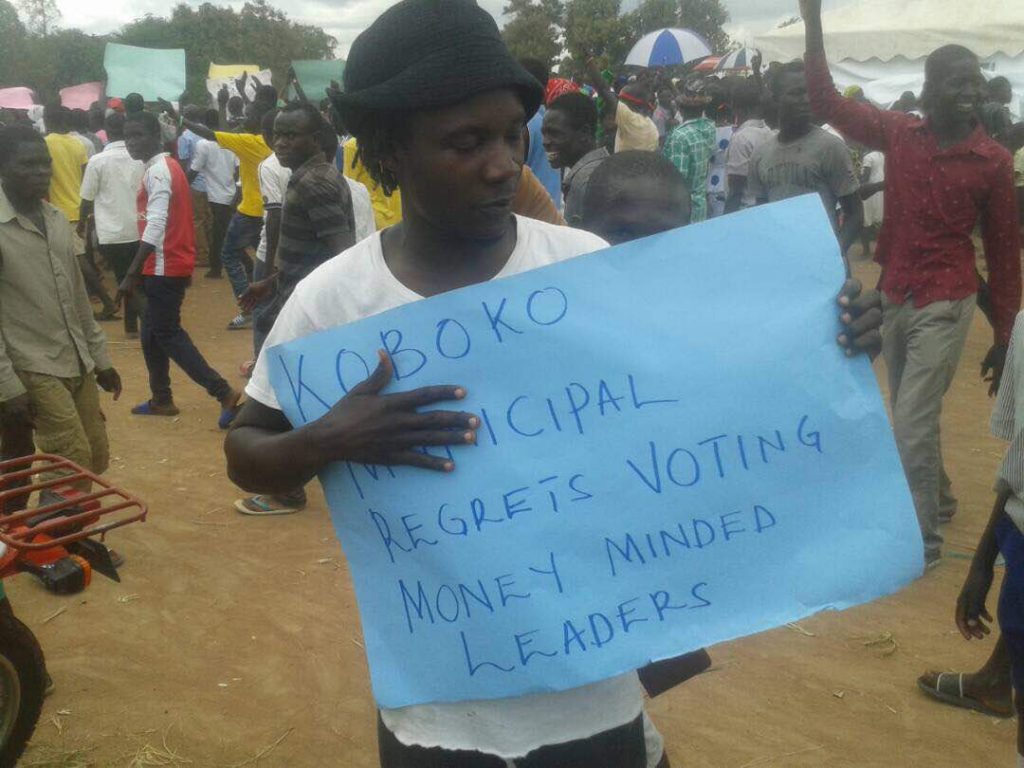 KOBOKO
MUNICIPAL
REGRETS VOTING
MONEY MINDED
LEADERS